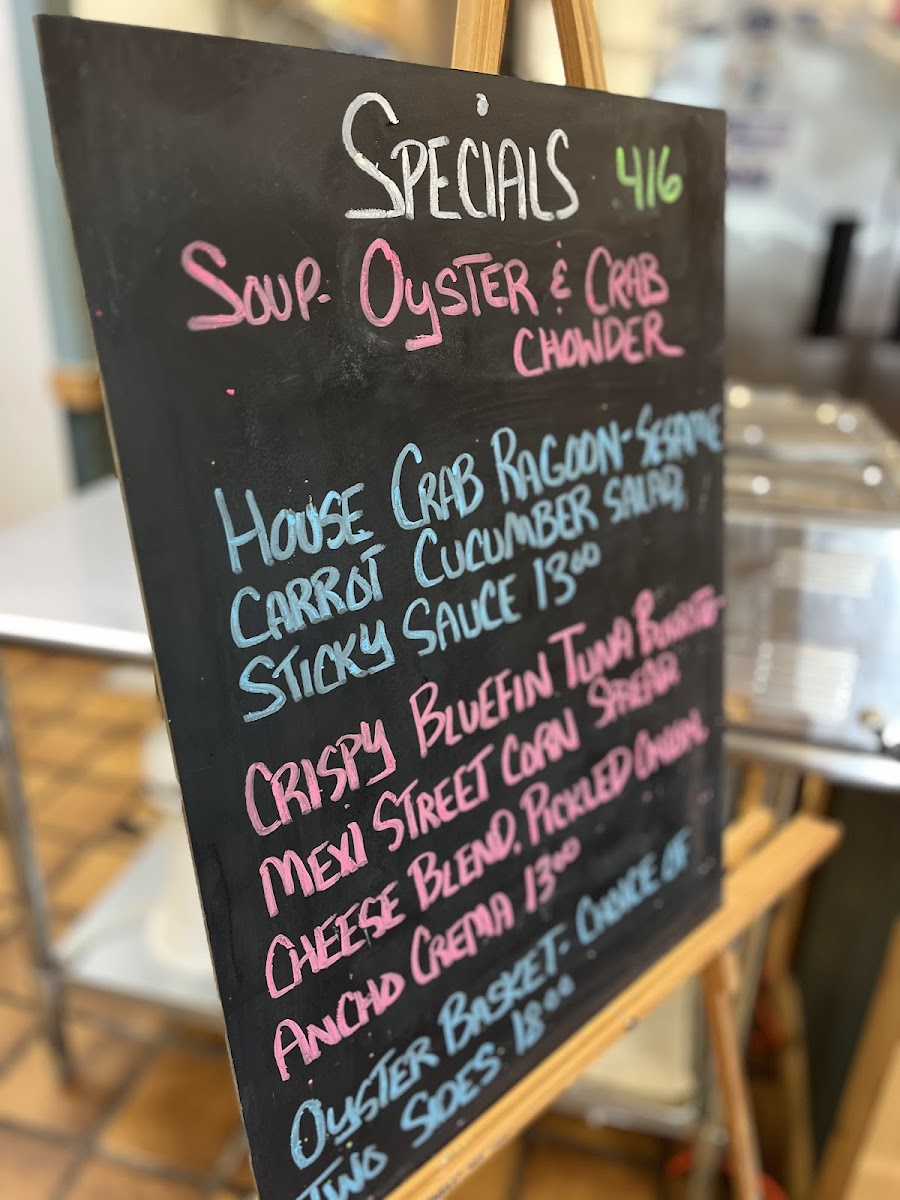 SPECIALS 4/6
SOUP- OYSTER & CRAB
CHOWDER
HOUSE CRAB RAGOON- SESAME
CARROT CUCUMBER SALAD,
STICKY SAUCE 13.00
CRISPY BLUEFIN TUNA BURRITO-
MEXI STREET CORN SPREAD,
CHEESE BLEND, PICKLED ONION,
ANCHO CREMA 13.00
OYSTER BASKET- CHOICE OF
TWO SIDES 18.00